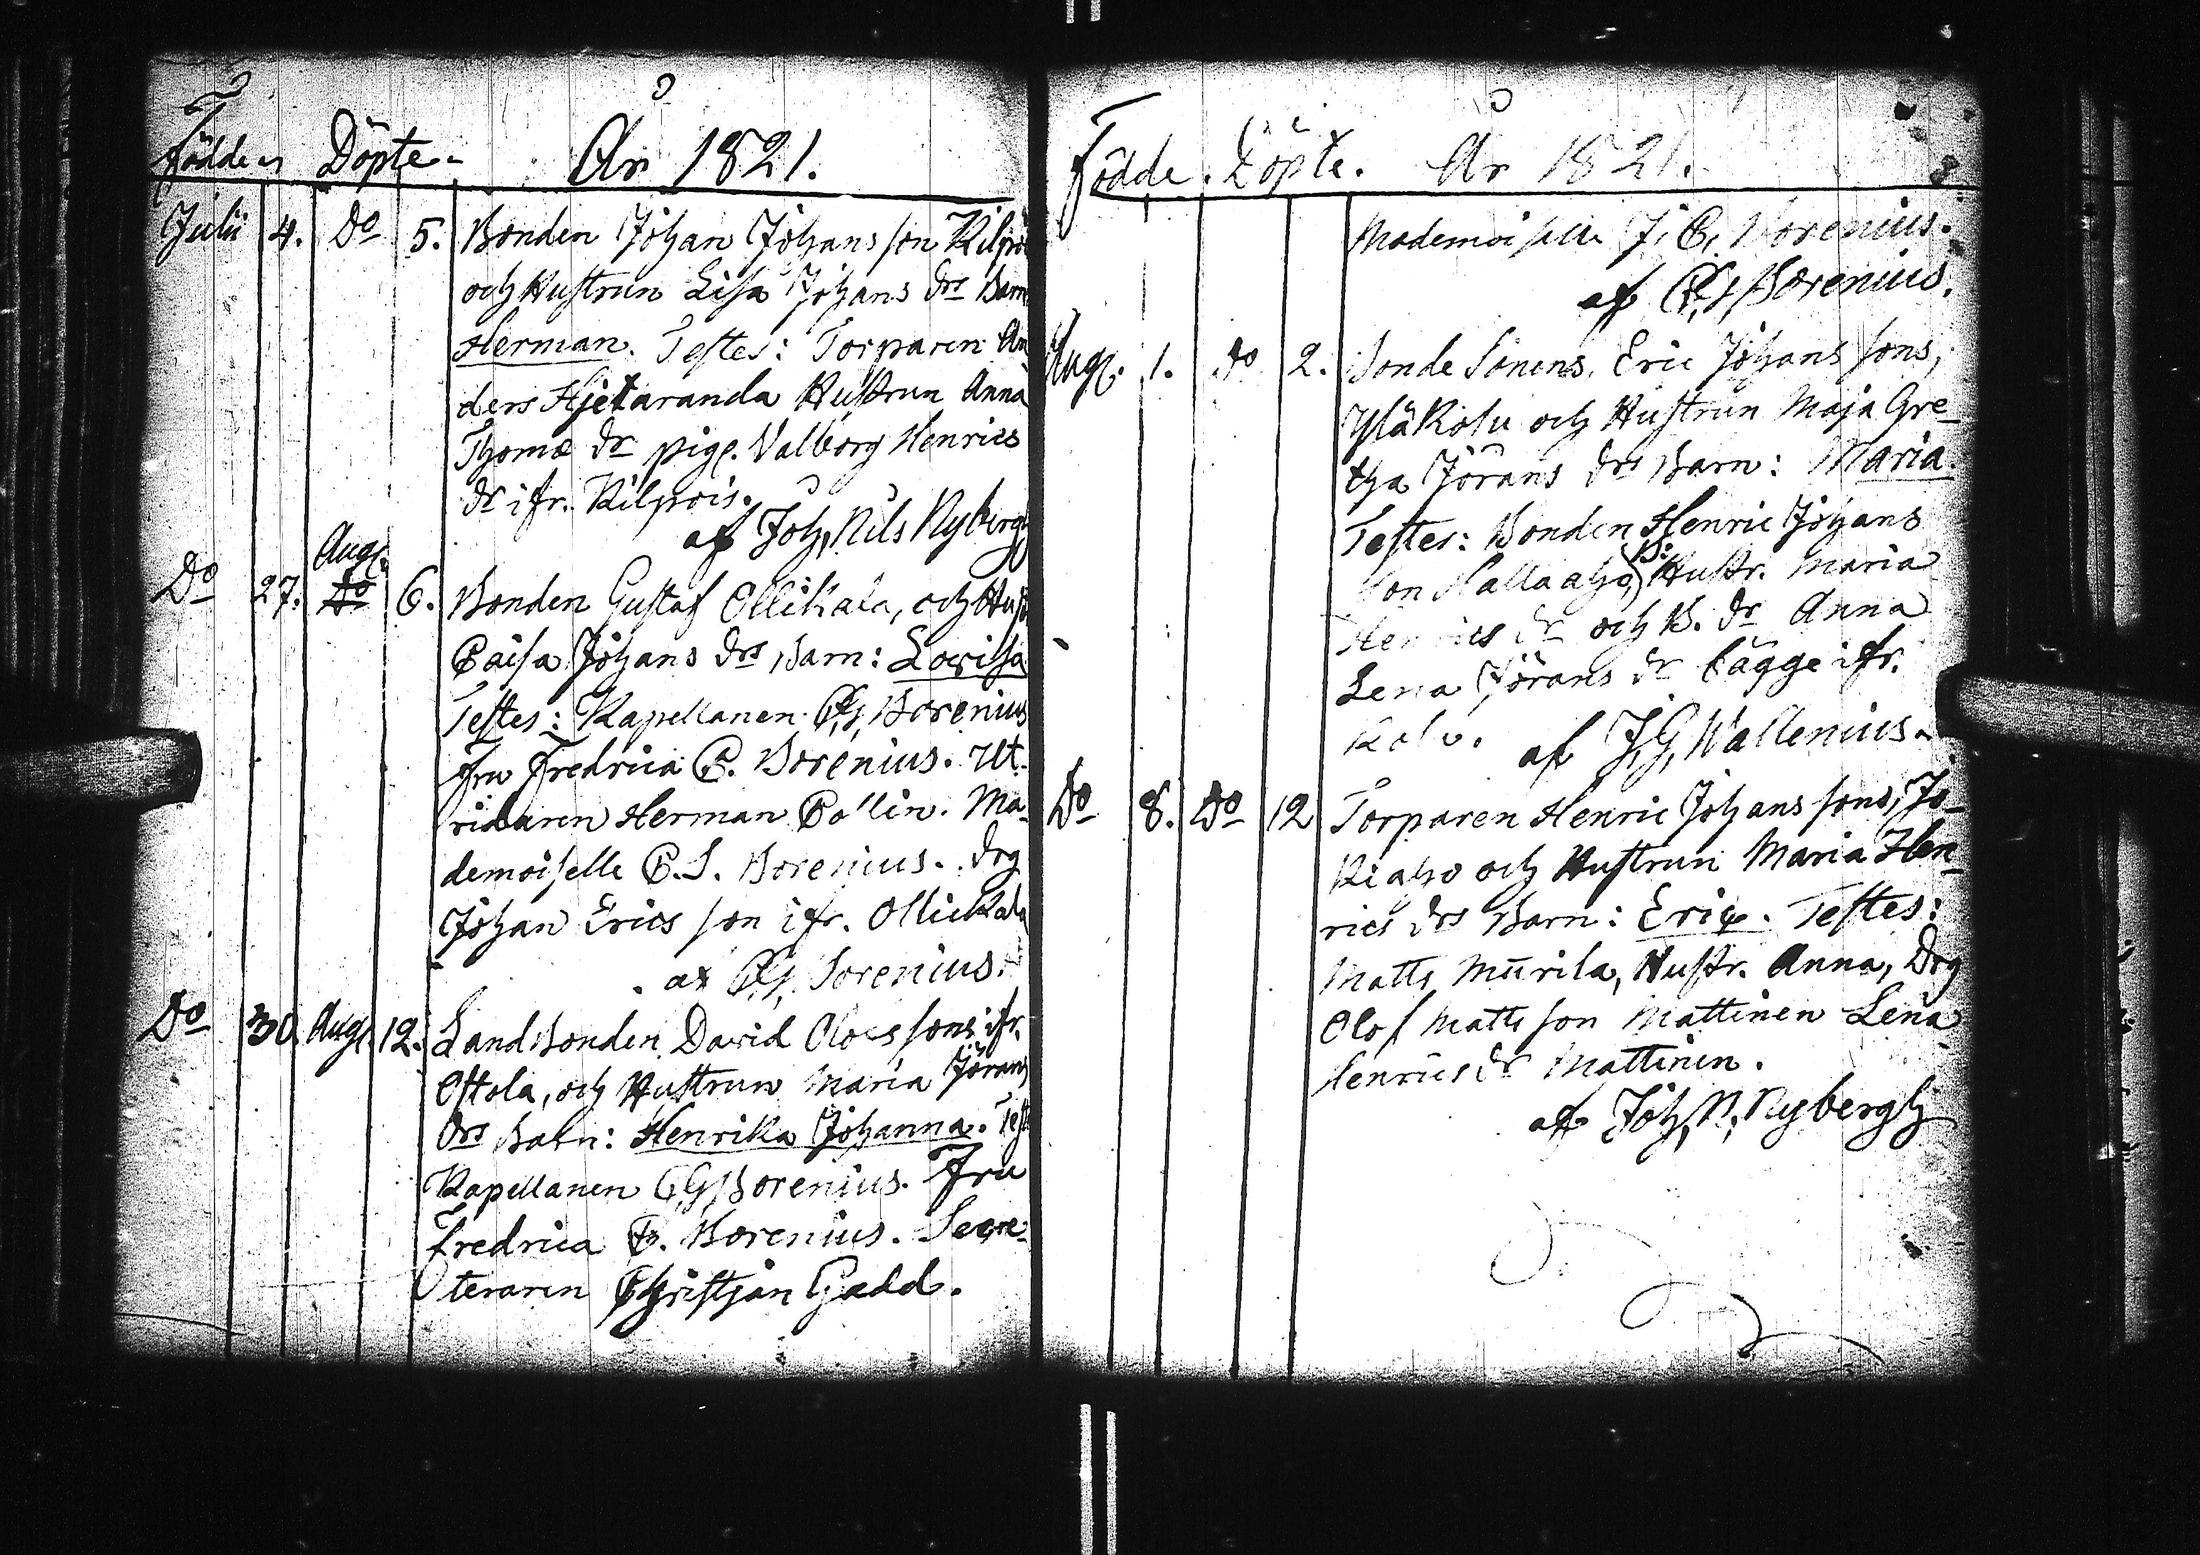 Födde Döpte År 1821.
Julii 4. Do 5. Bonden Johan Johansson Kilpois
och Hustrun Lisa Johans drs Barn
Herman. Testes: Torparen An
ders Hjetaranda Hustrun Anna
Thomæ dr pig. Valborg Henrics
dr ifr. Kilpois.
af Joh, Nils Nybergh
Aug.
Do 27. Do 6. Bonden Gustaf Ollikala, och Hust
Caisa Johans drs Barn: Lovisa
Testes: Kapellanen C,G, Borenius
Fru Fredrica C. Borenius. Ut-
ridaren Herman Collin. Ma-
demoiselle C.S. Borenius. Drg
Johan Ericsson ifr. Ollickala
af C,G, Borenius.
Do 30. Aug. 12. Landbonden David Olofssons ifr.
Ostola, och Hustrun Maria Jörans
drs Barn: Henrika Johanna. Test
Kapellanen C,G, Borenius. Fru
Fredrica C. Borenius. Secre-
teraren Christjan Gadd.
Födde. Döpte. År 1821.
Mademoiselle J, C, Borenius.
af C,G, Borenius.
Aug. 1. Do 2. Bonde Sonens, Eric Johanssons,
Ylä Kolu och Hustrun Maja Gre-
tha Jörans drs Barn: Maria.
Testes: Bonden Henric Johans
son Hallaaho, B: Hustr. Maria
Henrics dr och B. dr Anna
Lena Jörans dr Cägge ifr.
Kolu. af J,G, Wallenius.
Do 8. Do 12 Torparen Henric Johanssons, Jo-
kiaho och Hustrun Maria Hen-
rics drs Barn: Eric. Testes:
Matts Murila, Hustr. Anna, Drg
Olof Mattsson Mattinen Lena
Henrics dr Mattinen.
af Joh, N, Nybergh